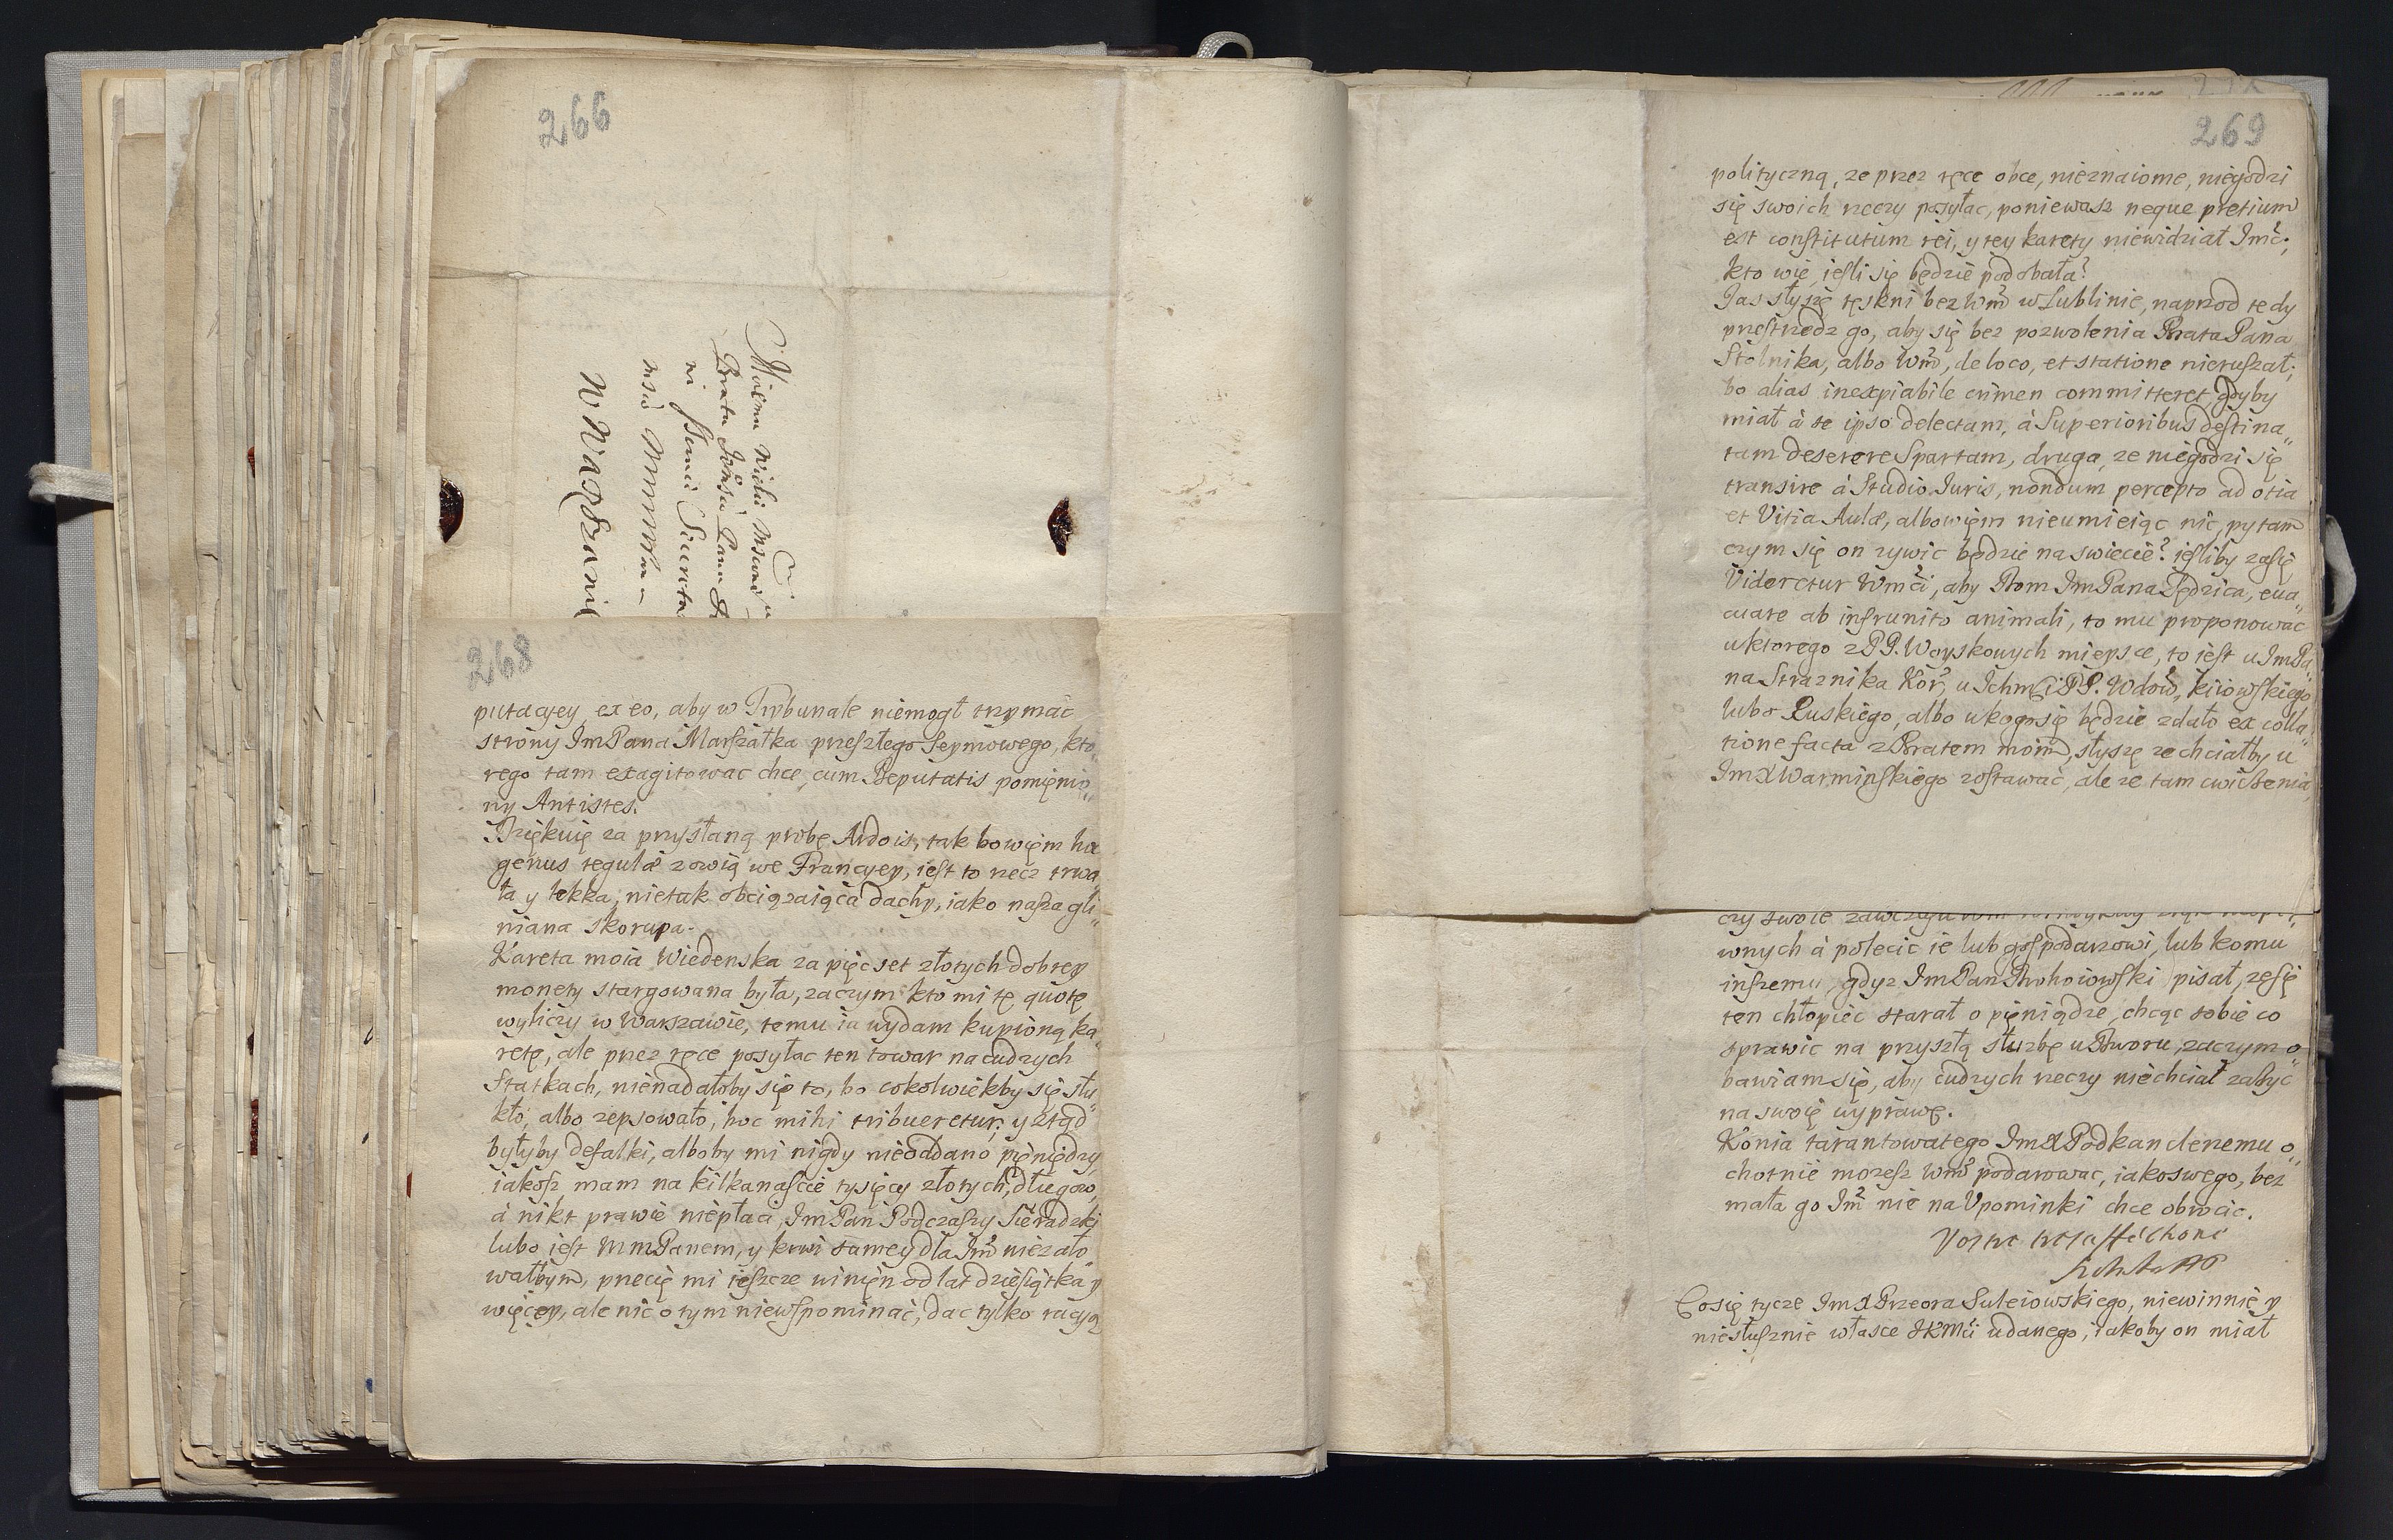 266
w Warszawie
268
putacyey, ex eo, aby w Trybunale niemogł trzymać
strony Im Pana Marszałka przeszłego Seymowego, kto„
rego tam exagitowac chce, cum Deputatis pomięnio„
ny Antistes.
Dziękuię za przysłaną probę Ardois, tak bowięm hoc
genus regulæ zowią we Francyey, iest to rzecz trwa„
ła y lekka, nietak obciązaiąca dachy, iako nasza gli„
niana skorupa.
Kareta moia Wiedenska za pięc set złotych dobrey
monety stargowana była, zaczym kto mi tę quotę
wyliczy w Warszawie, temu ia wydam kupioną ka„
retę, ale przez ręce posyłac ten towar na cudzych
Statkach, nienadałoby się to, bo cokolwiekby się stłu„
kło, albo zepsowało, hoc mihi tribueretur, y ztąd
byłyby defalki, alboby mi nigdy nieoddano pięniędzy,
iakosz mam na kilkanascie tysięcy złotych długow,
á nikt prawie niepłaci, Im Pan Podczaszy Sieradzki
lubo iest Mm Panem, y krwi samey dla Imci niezało„
wałbym, przecię mi ieszcze winięn od lat dziesiątka y
więcey, ale nic o tym niewspominać, dac tylko racyą
269
polityczną, ze przez ręce obce, nieznaiome, niegodzi
się swoich rzeczy posyłac, poniewasz neque pretium
est constitutum rei, y tey karety niewidział Imć;
kto wie, iesli się będzie podobała?
Jas słyszę tęskni bez Wmci w Lublinie, naprzod tedy
przestrzedz go, aby się bez pozwolenia Brata Pana
Stolnika, albo Wmci, de loco, et statione nieruszał;
bo alias inexpiabile crimen committeret, gdyby
miał à se ipso delectam, à Superioribus destina„
tam deserere Spartam, druga, ze niegodzi się
transire à Studio Iuris, nondum percepto ad otia
et Vitia Aulæ, albowięm nieumieiąc nic, pytam
czym się on zywic będzie na swiecie? iesliby zasię
Videretur Wmci, aby Dom Im Pana Sędzica, eua„
cuare ab infrunito animali, to mu proponowac
u ktorego z PP. Woyskowych mieysce, to iest u Im Pa„
na Straznika Kor, u Ichmci PP. Wdow, kiiowskiego
lubo Ruskiego, albo u kogo się będzie zdało ex colla„
tione facta z Bratem moim, słyszę ze chciałby u
Im X Warminskiego zostawać, ale ze tam cwiczenia
wnych á polecic ie lub gospodarzowi, lub komu
inszemu, gdyz Im Pan Drohoiowski pisał, ze się
ten chłopiec starał o pięniądze, chcąc sobie co
sprawic na przyszłą słuzbę u Dworu, zaczym o„
bawiam się, aby cudzych rzeczy niechciał zazyć
na swoię wyprawę.
Konia tarantowatego Im X Podkanclerzemu o„
chotnie mozesz Wmci podarowac, iako swego, bez
mała go Imci nie na Upominki chce obrocic.
Co się tycze Im X Przeora Suleiowskiego, niewinnie y
niesłusznie w łasce JKMci udanego, iakoby on miał